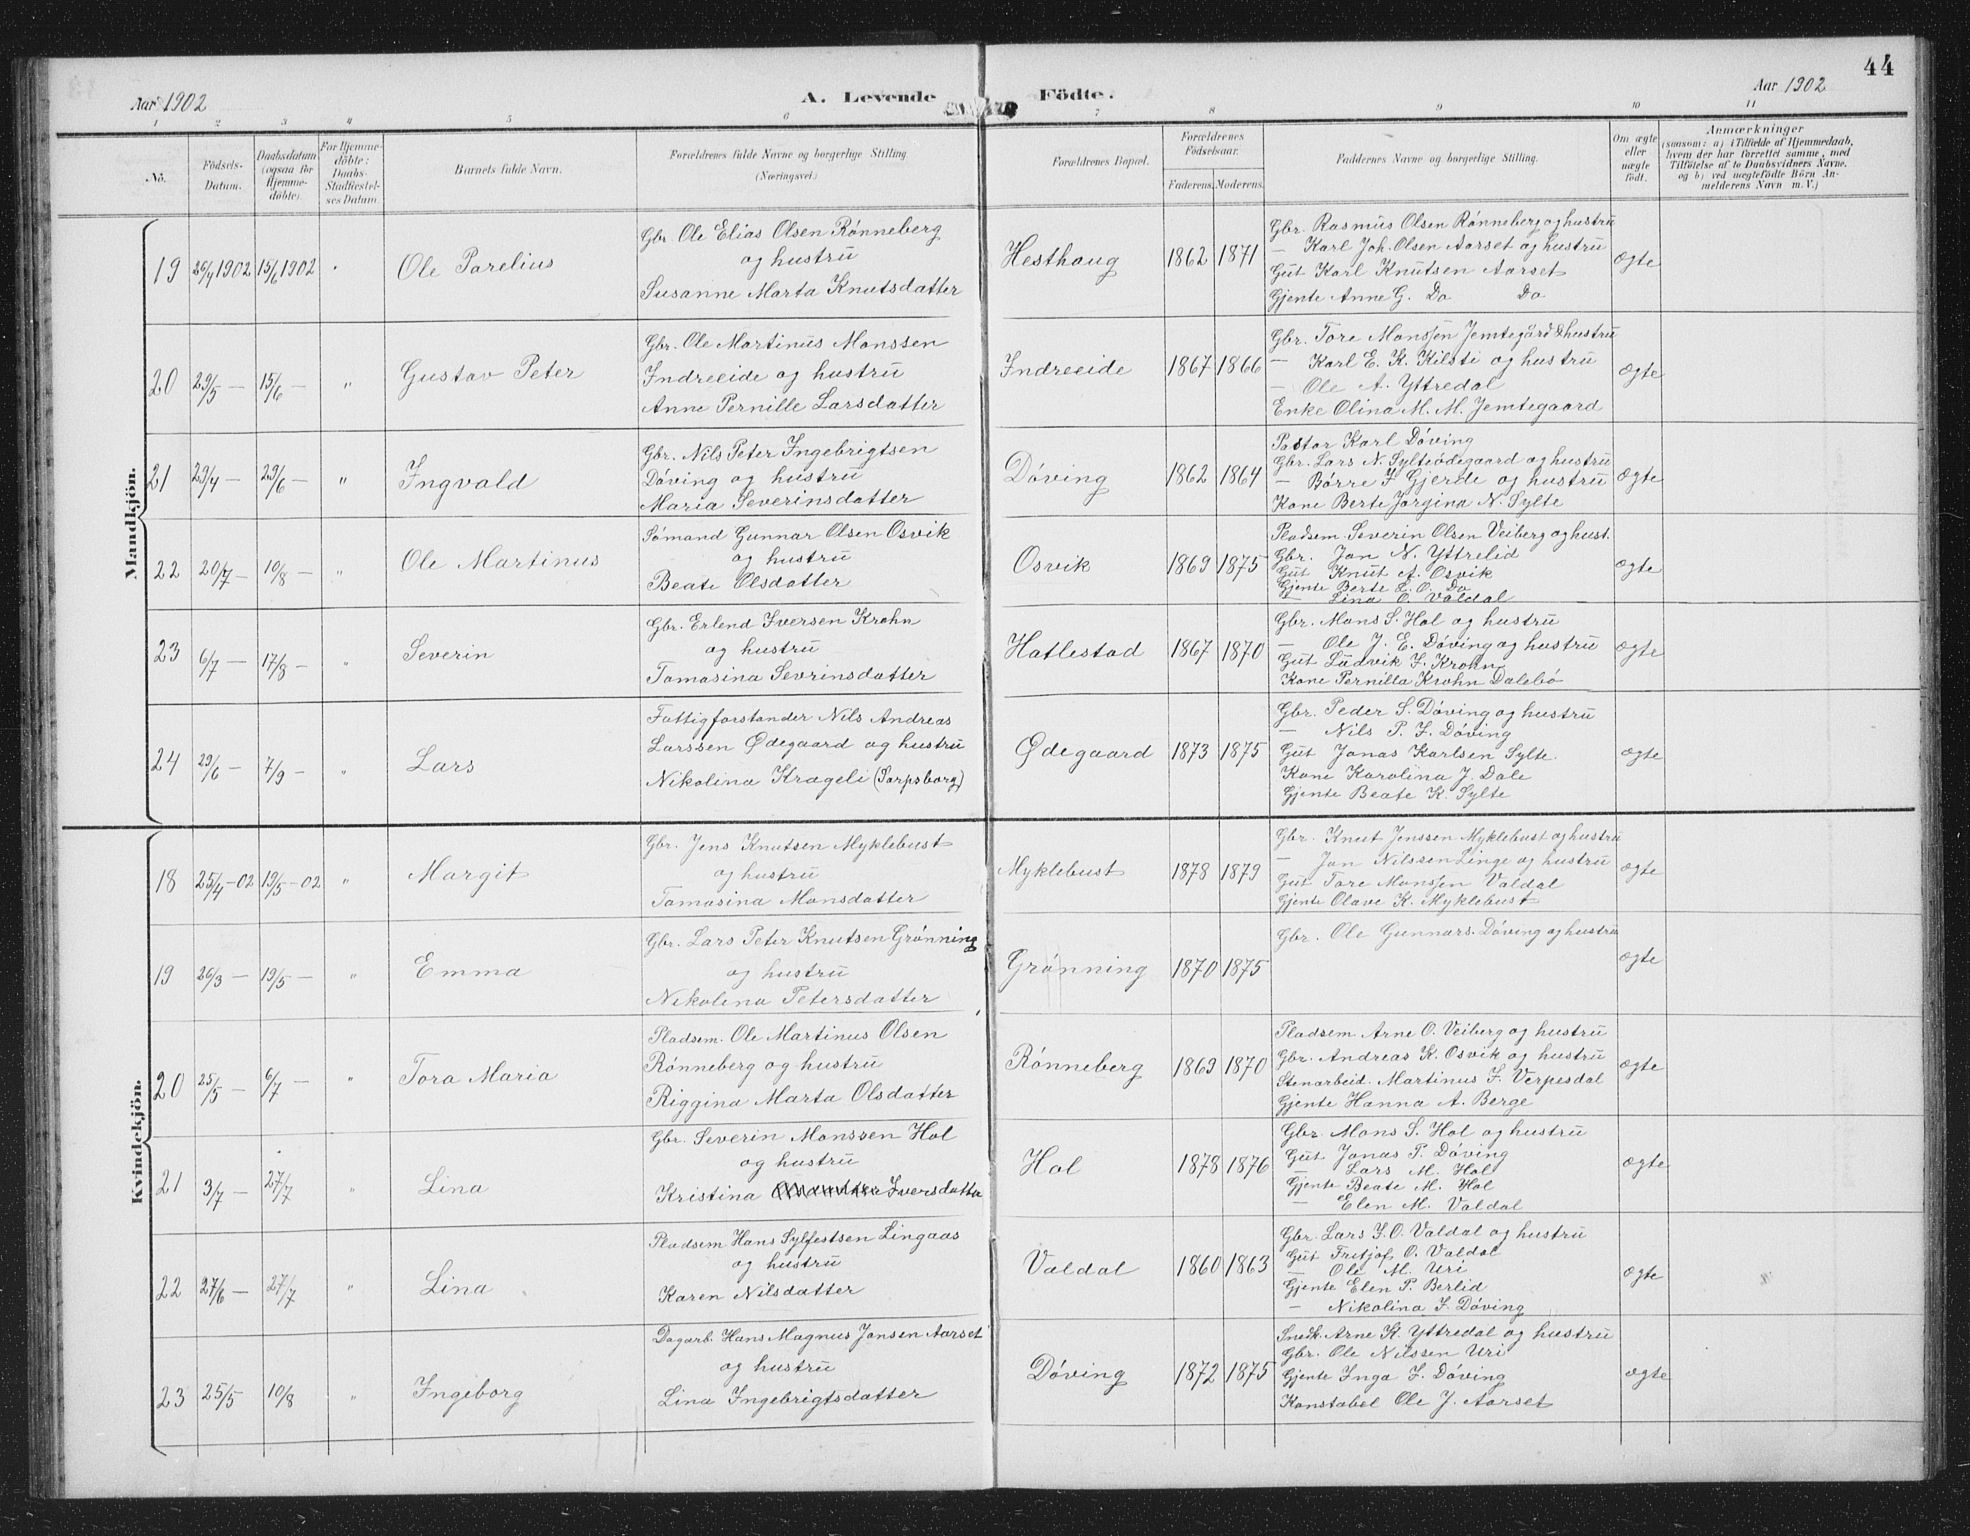 44
Aar 1902
A. Levende
Födte.
Aar 1902
1 2 3 4 5 6 7 8 9 10 11
No.
Födsels-
Datum.
Daabsdatum
(ogsaa for
Hjemme-
döbte).
For Hjemme-
döbte:
Daabs-
Stadfæstel-
ses Datum.
Barnets fulde Navn.
Forældrenes fulde Navne og borgerlige Stilling.
(Næringsvei.)
Forældrenes Bopæl.
Forældrenes
Födselsaar.
Faderens. Moderens.
Faddernes Navne og borgerlige Stilling.
Om ægte
eller
uægte
födt.
Anmærkninger
(saasom: a) i Tilfælde af Hjemmedaab,
hvem der har forrettet samme, med
Tilföielse af to Daabsvidners Navne,
og b) ved uægtefödte Börn An-
melderens Navn m. V.)
Mandkjön.
19 26/4 1902 15/6 1902 " Ole Parelius
Gbr. Ole Elias Olsen Rønneberg
og hustrü
Susanne Marta Knutsdatter
Hesthaug 1862 1871
Gbr. Rasmus Olsen Rønneberg og hustrü
— Karl Joh. Olsen Aarset og hustrü
Gut Karl Knutsen Aarset
Gjente Anne G. Do Do
ægte
20 29/5 — 15/6 — " Gustav Peter
Gbr. Ole Martinüs Monssen
Indreeide og hustrü
Anne Pernille Larsdatter
Indreeide 1867 1866
Gbr. Tore Monssen Jemtegård & hustrü
— Karl E. K. Kilsti og hustrü
— Ole A. Yttredal
Enke Olina M. M. Jemtegaard
ægte
21 29/4 — 29/6 — " Ingvald
Gbr. Nils Peter Ingebrigtsen
Døving og hustrü
Maria Severinsdatter
Døving 1862 1864
Pastor Karl Døving
Gbr. Lars N. Sylteødegaard og hustrü
— Børre I Gjerde og hustrü
Kone Berte Jørgina N. Sylte
ægte
22 20/7 — 10/8 — " Ole Martinus
Sømand Gunnar Olsen Osvik
og hustrü
Beate Olsdatter
Osvik 1869 1875
Pladsem Severin Olsen Veiberg og hust.
Gbr. Jon N. Yttrelid
Gut Knut A. Osvik
Gjente Berte E. O. Do
— Lina O. Valdal
ægte
23 6/7 — 17/8 — " Severin
Gbr. Erlend Iversen Krohn
og hustrü
Tomasina Sevrinsdatter
Hatlestad 1867 1870
Gbr. Mons S. Hol og hustrü
— Ole J. E. Døving og hustrü
Gut Ludvik I. Krohn
Kone Pernilla Krohn Dalebø
ægte
24 29/6 — 7/9 — " Lars
Fattigforstander Nils Andreas
Larssen Ødegaard og hustrü
Nikolina Krageli (Sarpsborg)
Ødegaard 1873 1875
Gbr. Peder S. Døving og hustrü
— Nils P. I. Døving
Gut Jonas Karlsen Sylte.
Kone Karolina J. Dale
Gjente Beate K. Sylte
ægte
Kvindekjön.
18 25/4 -02 19/5 -02 " Margit
Gbr. Jens Knutsen Myklebust
og hustrü
Tomasina Monsdatter
Myklebust 1878 1879
Gbr. Knut Jenssen Myklebust og hustru
— Jon Nilssen Linge og hustrü
Gut Tore Monssen Valdal
Gjente Olave K. Myklebust
ægte
19 26/3 — 19/5 — " Emma
Gbr. Lars Peter Knutsen Grønning
og hustrü
Nikolina Petersdatter
Grønning 1870 1875
Gbr. Ole Gunnars. Døving og hustru
ægte
20 25/5 — 6/7 — " Tora Maria
Pladsem. Ole Martinus Olsen
Rønneberg og hustrü
Riggina Marta Olsdatter
Rønneberg 1869 1870
Pladsem Arne O. Veiberg og hustrü
Gbr. Andreas K. Osvik og hustrü
Stenarbeid. Martinus I. Verpesdal
Gjente Hanna A. Berge
ægte
21 3/7 — 27/7 " Lina
Gbr. Severin Monssen Hol
og hustrü
Kristina Iversdatter
Hol 1878 1876
Gbr. Mons S. Hol og hustrü
Gut Jonas P. Døving
— Lars M. Hol
Gjente Beate M. Hol
— Elen M. Valdal
ægte
22 27/6 — 27/7 " Lina
Pladsem Hans Sylfestsen Lingaas
og hustrü
Karen Nilsdatter
Valdal 1860 1863
Gbr. Lars I. O. Valdal og hustrü
Gut Fritjof O. Valdal
— Ole M. Uri
Gjente Elen P. Berlid
— Nikolina I. Døving
ægte
23 25/5 10/8 " Ingeborg
Dagarb. Hans Magnus Jonsen Aarset
og hustrü
Lina Ingebrigtsdatter
Døving 1872 1875
Snedk. Arne K. Yttredal og hustrü
Gbr. Ole Nilssen Uri
Gjente Inga I. Døving
Konstabel Ole J. Aarset
ægte